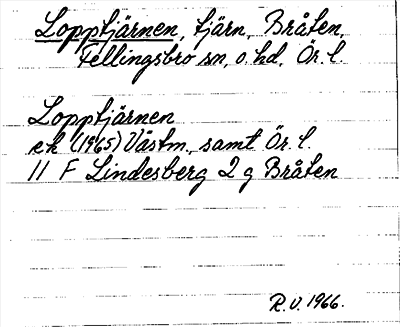 Lopptjärnen, tjärn, Bråten,
Fellingsbro sn, o. hd, Ör. l.
Lopptjärnen
ek (1965) Västm., samt Ör. l.
11 F Lindesberg 2 g Bråten
R.V. 1966.